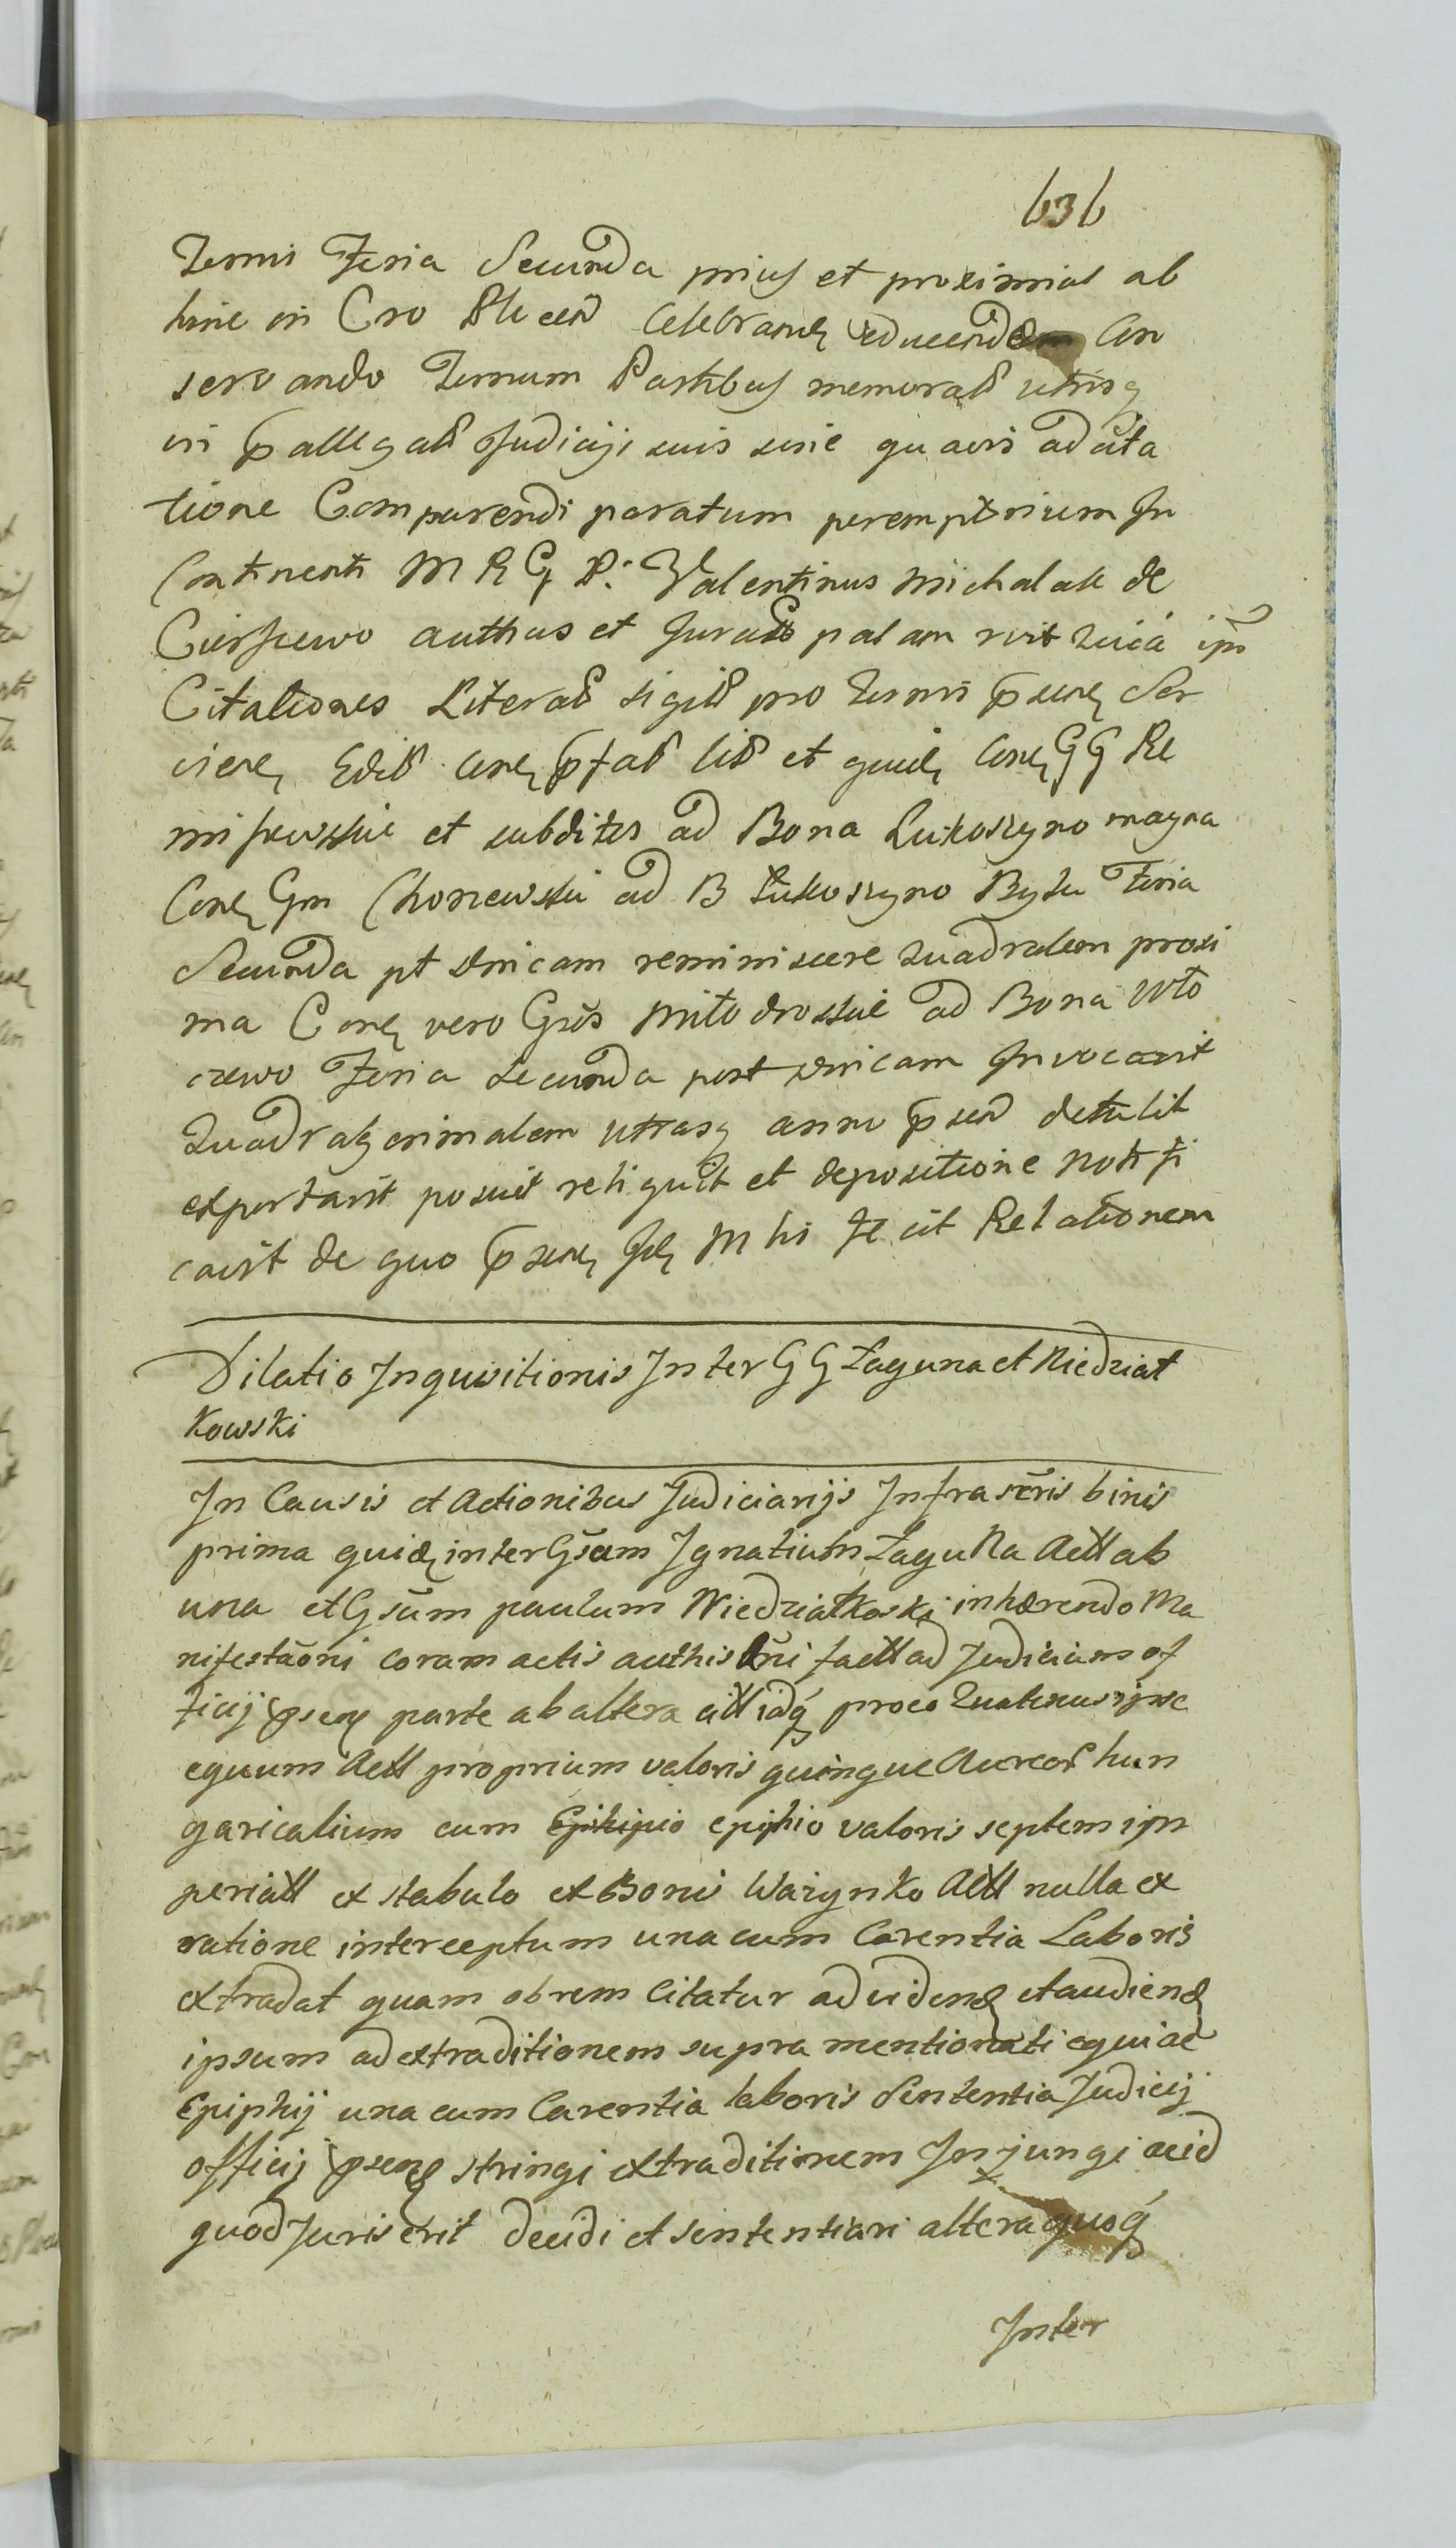 636
Termis Feria Secunda prius et proximius ab
hinc in Cro Plocen Celebran educendam Con
servando Termum Partibus memorat utrisq
in pallegat Judicijs suis sine quavis adcita
tione Comparendi paratum peremptorium In
Continenti M R G P: Valentinus Michalak de
Cierszewo authus et Jurat palam rvit quia ipse
Citationes Literat sigill pro Termi psen Ser
vien Edit con pfat lit et quid con GG Re
miszewskie et subditos ad Bona Lukoszyno magna
Con Gm Choszewski ad B Łukoszyno Byłu Feria
Secunda pt dnicam reminiscere quadralem proxi
ma Con vero Gsos Młodroskie ad Bona Wło
czewo Feria Secunda post dnicam Invocavit
Quadragesimalem utrasq anni psen detulit
exportavit posuit reliquit et depositione notifi
cavit de quo psen Jd M hi fecit Relationem
Dilatio Inquisitionis Inter G G Łaguna et Niedział
kowski
In Causis et Actionibus Judiciarijs Infrascris binis
prima quid inter Gsum Ignatium Łaguna Actt ab
una et Gsum paulum Niedziałkoski inhærendo Ma
nifestaoni coram actis authis hui factt ad Judicium of
ficij psen parte ab altera citt idq pro eo Quatenus ipse
equum Actt proprium valoris quinque Aureor hun
garicalium cum epiphio valoris septem im
periatt ex stabulo ex Bonis Warynko Actt nulla ex
ratione interceptum una cum Carentia Laboris
extradat quam obrem Citatur ad viden et audien
ipsum ad extraditionem supra mentionati equi ac
Epiphij una cum Carentia laboris Sententia Judicij
officij psen stringi extraditionem Injungi acid
quod Juris erit decidi et sententiari altera quoq
Inter